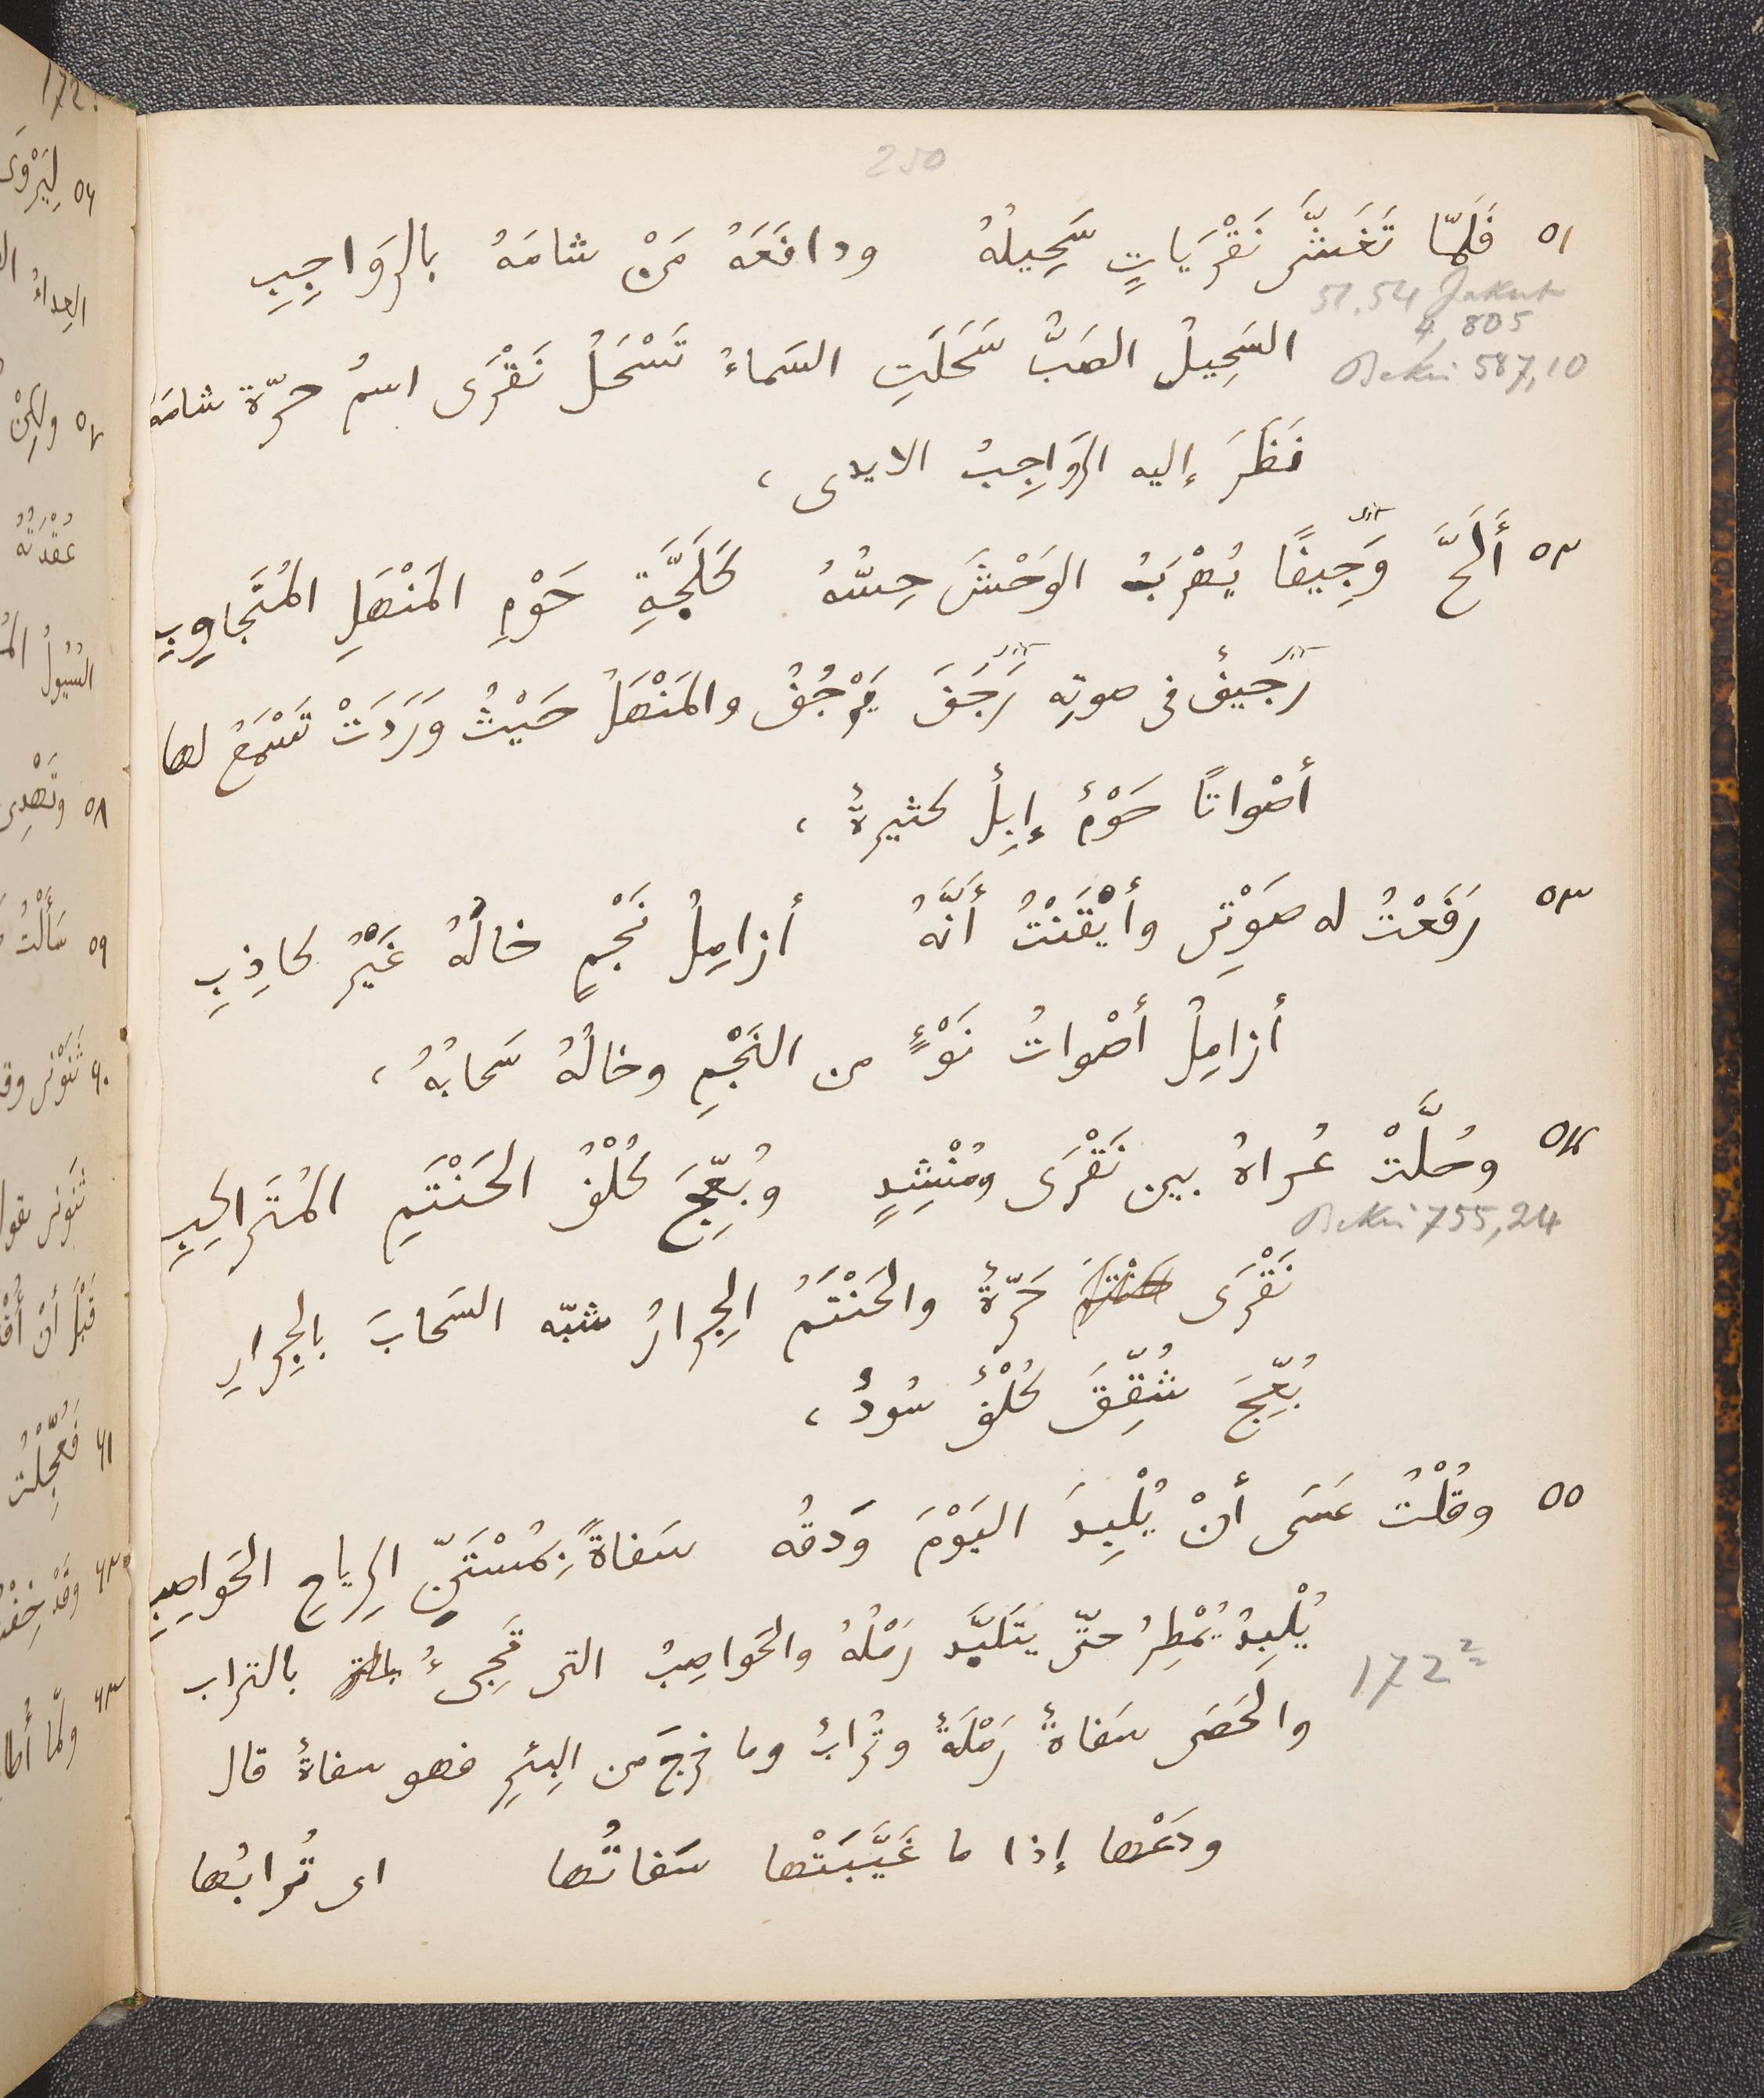 250
٥١ فَلَمّا تَغَشَّى نَقْرَيَاتٍ سَحِيلُهُ ودافَعَهُ مَنْ شامَهُ بالرَوَاجِبِ
51. 54 Jakut
4, 805
Bekri 587,10
السَحِيلُ الصَبُّ سَحَلَتِ السَماءُ تَسْحَلُ نَقْرَى اسمُ حرّة شامَهُ
نَظَرَ إليه الرَوَاجِبُ الايدى ،
٥٢ أَلَحَّ وَجِيفًا يُهْرَبُ الوَحْشَ حِسُّهُ كَلَجَّةِ حَوْمِ المَنْهَلِ المُتَجاوِبِ
رَجِيفٌ فى صوتِهِ رَجَفَ يَرْجُفُ والمَنْهَلُ حَيْثُ وَرَدَتْ تَسْمَعُ لها
أصْواتًا حَوْمٌ إبِلٌ كثيرةٌ ،
٥٣ رَفَعْتُ له صَوْتِى وأيْقَنْتُ أنَّهُ أزامِلُ نَجْمٍ خالُهُ غَيْرُ كاذِبِ
أزامِلُ أصْواتُ نَوْءٍ من النَجْمِ وخالُهُ سَحابُهُ ،
٥٤ وحُلَّتْ عُراهُ بين نَقْرَى ومُنْشِدٍ وبُعِّجَ كُلْفُ الحَنْتَمِ المُتَراكِبِ
Bekri 755,24
نَقْرَى حَرّةٌ والحَنْتَمُ الجِرارُ شبّه السَحابَ بالجِرارِ
بُعِّجَ شُقِّقَ كُلْفٌ سُودٌ ،
٥٥ وقُلْتُ عَسَى أنْ يُلْبِدَ اليَوْمَ وَدقُه سَفاةً بِمُسْتَنِّ الرِياحِ الحَواصِبِ
يُلْبِدُ يُمْطِرُ حتّى يتَلبَّد رَمْلُهُ والحَواصِبُ التى تَجِىءُ بالتراب
172 2
والحَصَى سَفاةٌ رَمْلَةٌ وتُرابٌ وما خرجَ من البِئرِ فهو سفاةٌ قال
ودَعْها إذا ما غَيَّبَتْها سَفاتُها اى تُرابُها